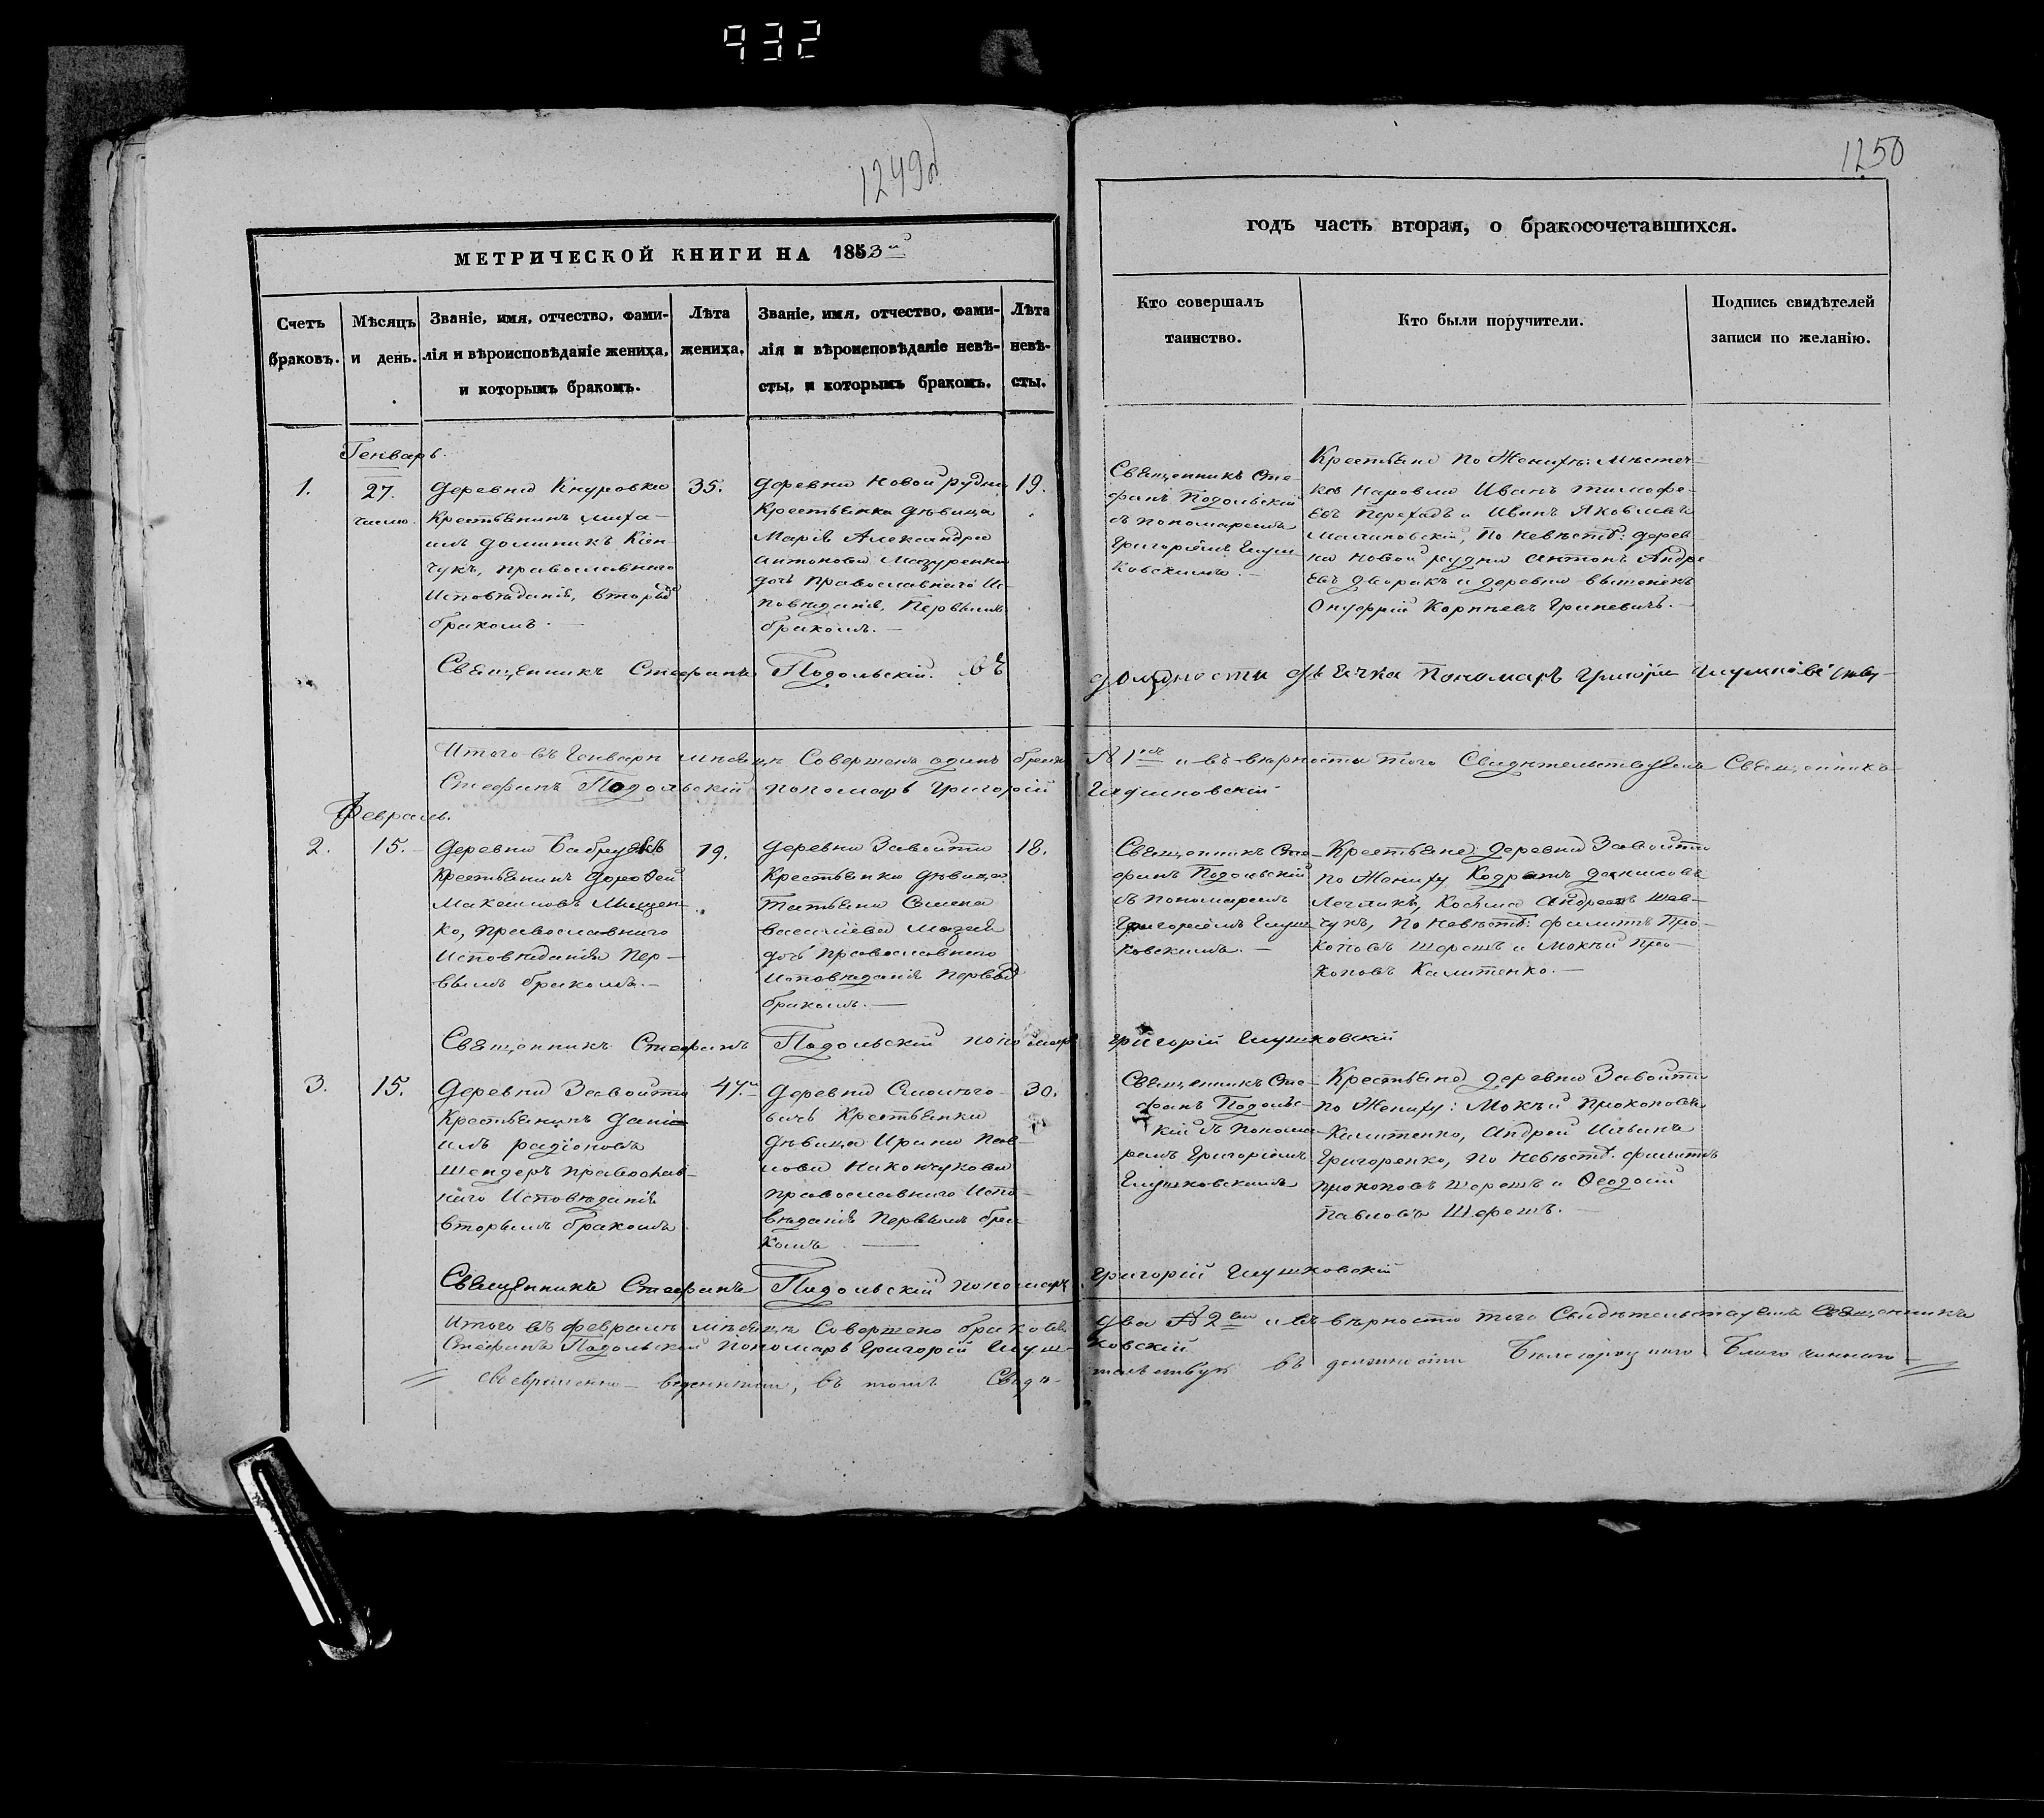 932
1249об
1250
МЕТРИЧЕСКОЙ КНИГИ НА 1853й
годъ часть вторая, о бракосочетавшихся.
Счетъ браковъ.
Мѣсяцъ и день.
Званіе, имя, отчество, фами-
лія и вѣроисповѣданіе жениха,
и которымъ бракомъ.
Лѣта
жениха.
Званіе, имя, отчество, фами-
лія и вѣроисповѣданіе невѣ-
сты, и которымъ бракомъ.
Лѣта
невѣ-
сты.
Кто совершалъ
таинство.
Кто были поручители.
Подпись свидѣтелей
записи по желанію.
Генварь.
1.
27.
число.
Деревни Кнуровки
Крестьянинъ Миха-
илъ Доминикъ
чукъ, православнаго
Исповѣданія, вторымъ
бракомъ. —
35.
Деревни Новой Рудни
Крестьянка дѣвица
Марія Александра
Антонова Мазуренко
дочь Православнаго Ис-
повѣданія, Первымъ
бракомъ. —
19.
Священникъ Сте-
фанъ Подольскій
съ пономаремъ
Григоріемъ Глуш-
ковскимъ. —
Крестьяне по Женихѣ: Мѣстеч-
ка Наровли Иванъ Тимофе-
евъ Переходъ и Иванъ Яковлевъ
Малиновскій, По Невѣстѣ: дерев
ни Новой рудни Антонъ Андре
евъ Дворакъ и деревни
Онуфрій Корнѣевъ Гриневичъ. —
Священникъ Стефанъ Подольскій. Въ должности дьячка Пономарь Григорій
Итого въ Генварѣ мѣсяцѣ Совершенъ одинъ бракъ № 1й и въ вѣрности того Свидѣтельствуемъ Священникъ
Стефанъ Подольскій пономарь Григорій Глушковскій
Февраль.
2.
15.
Деревни
Крестьянинъ Дорофей
Максимовъ Мищен-
ко, православнаго
Исповѣданія Пер-
вымъ бракомъ. —
19.
Деревни Завойти
Крестьянка дѣвица
Татьяна Самена
Василіева Мазай
дочь православнаго
Исповѣданія Первымъ
бракомъ. —
18.
Священникъ Сте-
фанъ Подольскій
съ пономаремъ
Григоріемъ Глуш-
ковскимъ. —
Крестьяне: деревни Завойти
по Жениху Кодратъ
Козьма Андреевъ Шев-
чукъ, По Невѣстѣ: Филипъ Про-
коповъ Шерешъ и Мокѣй Про-
коповъ Калитенко. —
Священникъ Стефанъ Подольскій пономарь Григорій Глушковскій
3.
15.
Деревни Завойти
Крестьянинъ Дані-
илъ Радіоновъ
Шендеръ православ-
наго Исповѣданія
вторымъ бракомъ
47.
Деревни Смолего-
вичь Крестьянка
дѣвица Ирина Пав-
лова Никончукова
православнаго Испо-
вѣданія Первымъ бра-
комъ —
30.
Священникъ Сте-
фанъ Подоль-
кій съ понома-
ремъ Григоріемъ
Глушковскимъ
Крестьяне деревни Завойти
по Жениху: Мокѣй Прокоповъ
Калитенко, Андрей Ильинъ
Григоренко, по Невѣстѣ: Филипъ
Прокоповъ Шерешъ и Феодосій
Павловъ Шерешъ. —
Священникъ Стефанъ Подольскій пономарь Григорій Глушковскій
Итого въ февралѣ мѣсяцѣ Совершено браковъ два № 2 и въ вѣрности того Свидѣтельствуемъ Священникъ
Стефанъ Подольскій Пономарь Григорій Глушковскій
въ томъ Свидѣтельствую въ должности Благочиннаго